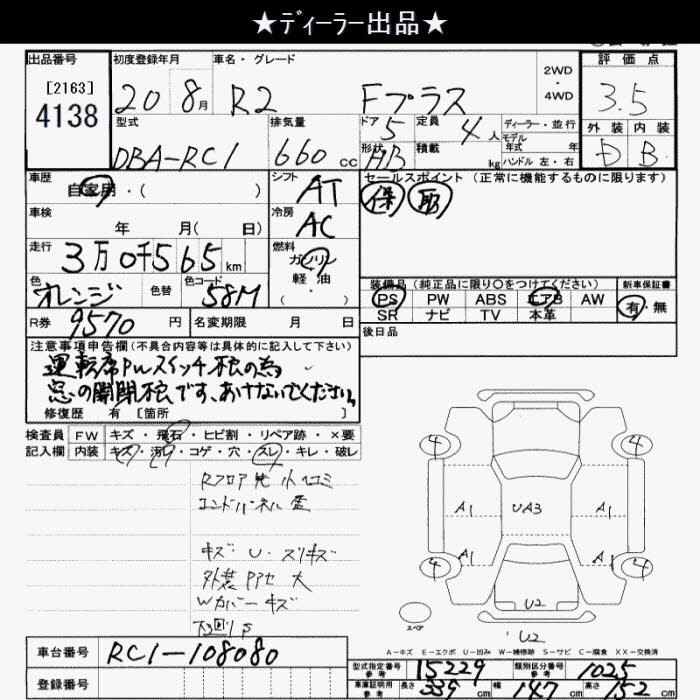 ★ディーラー出品★
出品番号 初度登録年月 車名・グレード 2WD・4WD 評価点
[2163]
4138
20 8月 R2 Fプラス 3.5
型式 排気量 ドア 5 定員 4人 ディーラー・並行 外装 内装
DBA-RC1 660cc 形状 AB 積載 kg モデル年式 年 D B
ハンドル 左・右
車歴 自家用・( ) シフト AT セールスポイント (正常に機能するものに限ります)
保 取
車検 年 月( 日) 冷房 AC
走行 3万0千565km 燃料 ガソリン・軽油
色 オレンジ 色替 色コード 58M
装備品(純正品に限り○をつけてください) 新車保証書
PS PW ABS エアB AW 有・無
SR ナビ TV 本革
R券 9570円 名変期限 月 日 後日品
注意事項申告欄(不具合内容等は具体的に記入して下さい)
運転席PWスイッチ不良の為
窓の開閉不良です、あけないでください。
修復歴 有 [箇所 ]
検査員 FW キズ・飛石・ヒビ割・リペア跡・×要
記入欄 内装 キズ・汚レ・コゲ・穴・スレ・キレ・破レ
Rフロア 先 小ヘコミ
エンドパネル
キズ・U・スリキズ
外装 大
Wカバーキズ
下回りS
4 4
A1 UA3 A1
A1 A1
4 4
U2
スペア
U2
A-キズ E-エクボ U-凹み W-補修跡 S-サビ C-腐食 XX-交換済
車台番号 RC1-108080
型式指定番号 参考 15229 類別区分番号 参考 1025
登録番号
車庫証明用 参考 長さ 339cm 幅 147cm 高さ 152cm